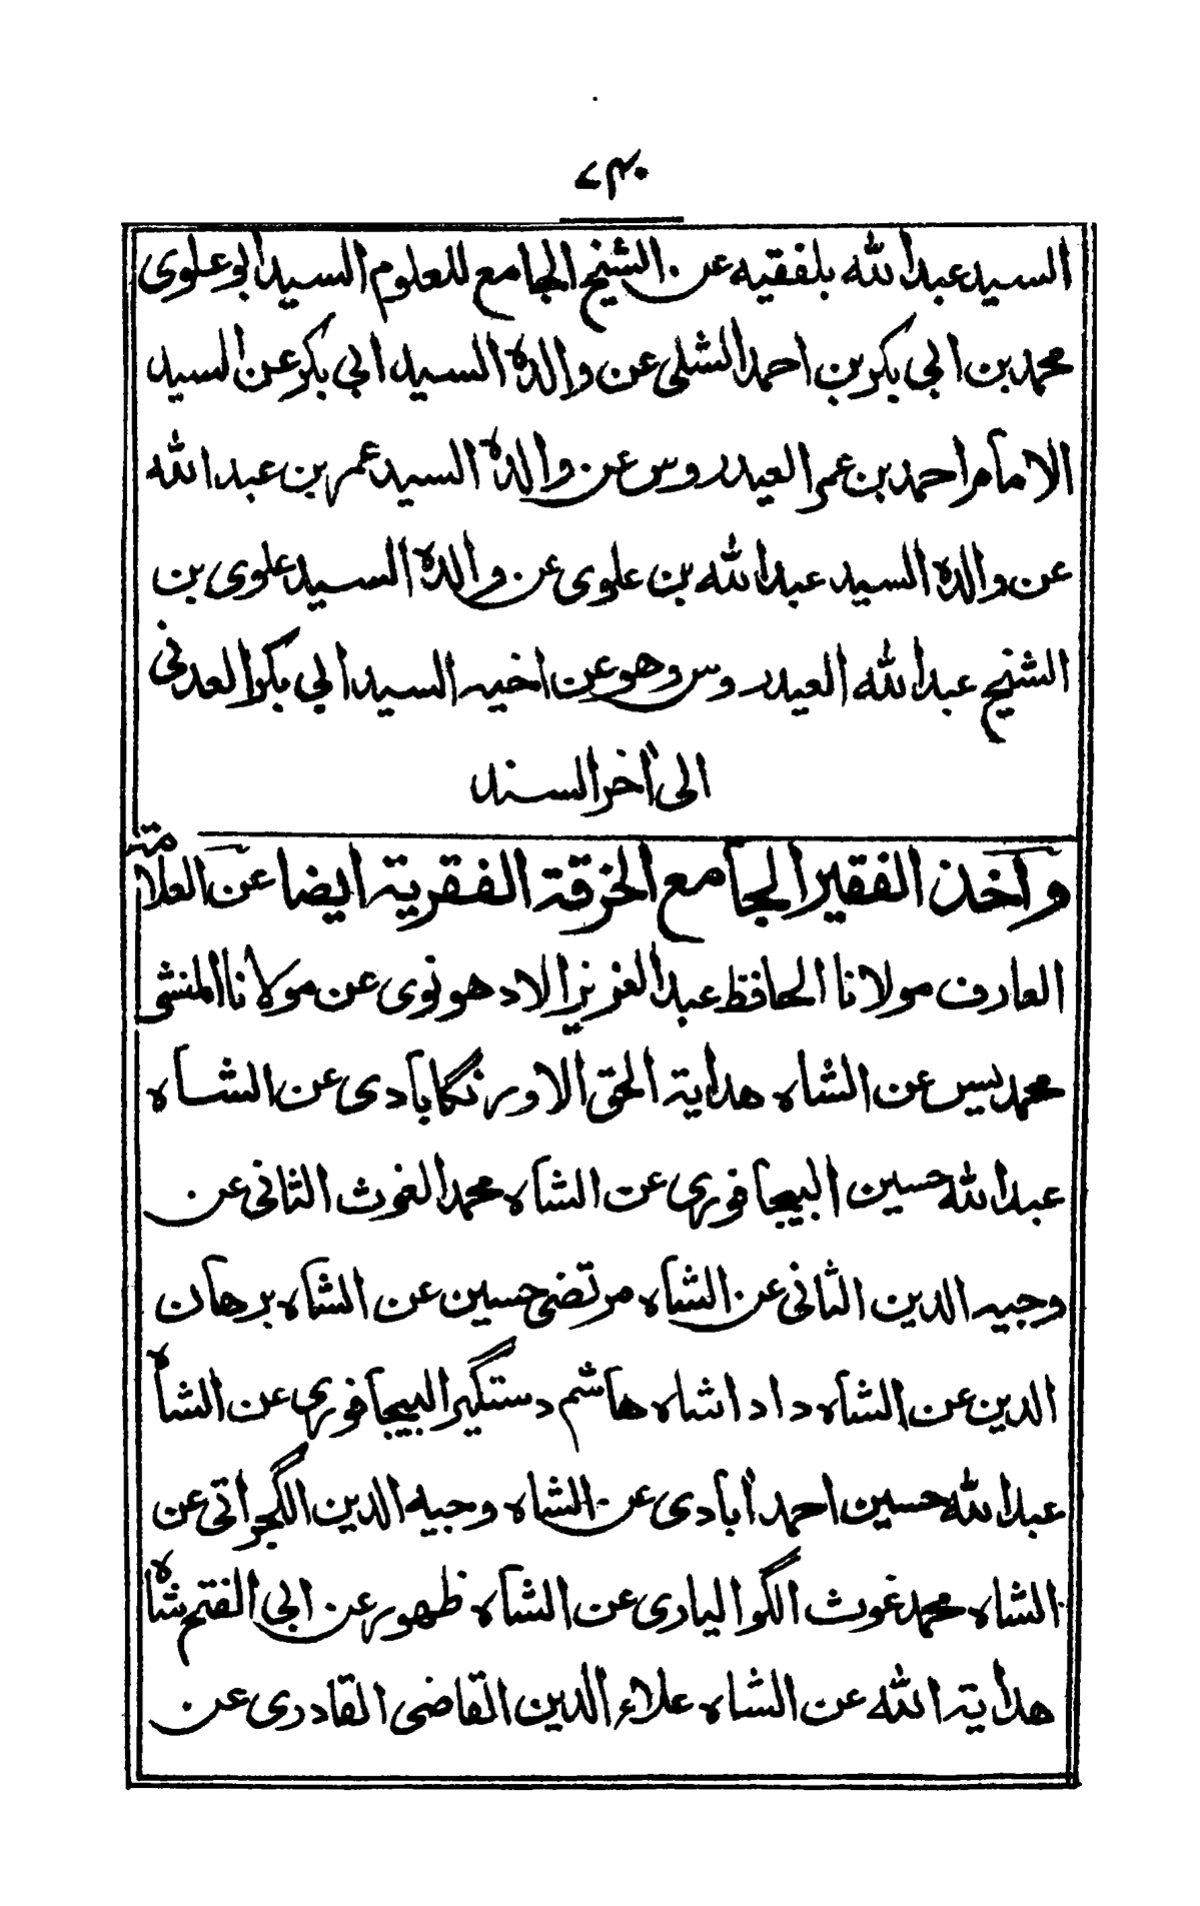 ٧٣٠
السيد عبد الله بلفقيه عن الشيخ الجامع للعلوم السيد ابو علوى
محمد بن ابي بكر بن احمد الشلى عن والده السيد ابي بكر عن السيد
الامام احمد بن عمر العيدروس عن والده السيد عمر بن عبد الله
عن والده السيد عبد الله بن علوى عن والده السيد علوى بن
الشيخ عبد الله العيدروس وهو عن اخيه السيد ابي بكر العدنى
الى آخر السند
وآخذ الفقير الجامع الخرقة الفقرية ايضا عن العلامة
العارف مولانا الحافظ عبد العزيز الادهونوى عن مولانا المنشى
محمد يسين عن الشاه هداية الحق الاورنگابادى عن الشاه
عبد الله حسين البيجافورى عن الشاه محمد الغوث الثانى عن
وجيه الدين الثانى عن الشاه مرتضى حسين عن الشاه برهان
الدين عن الشاه داداشاه هاشم دستگير البيجافورى عن الشاه
عبد الله حسين احمد آبادى عن الشاه وجيه الدين الگجراتى عن
الشاه محمد غوث الگواليارى عن الشاه ظهور عن ابي الفتح شاه
هداية الله عن الشاه علاء الدين القاضى القادرى عن